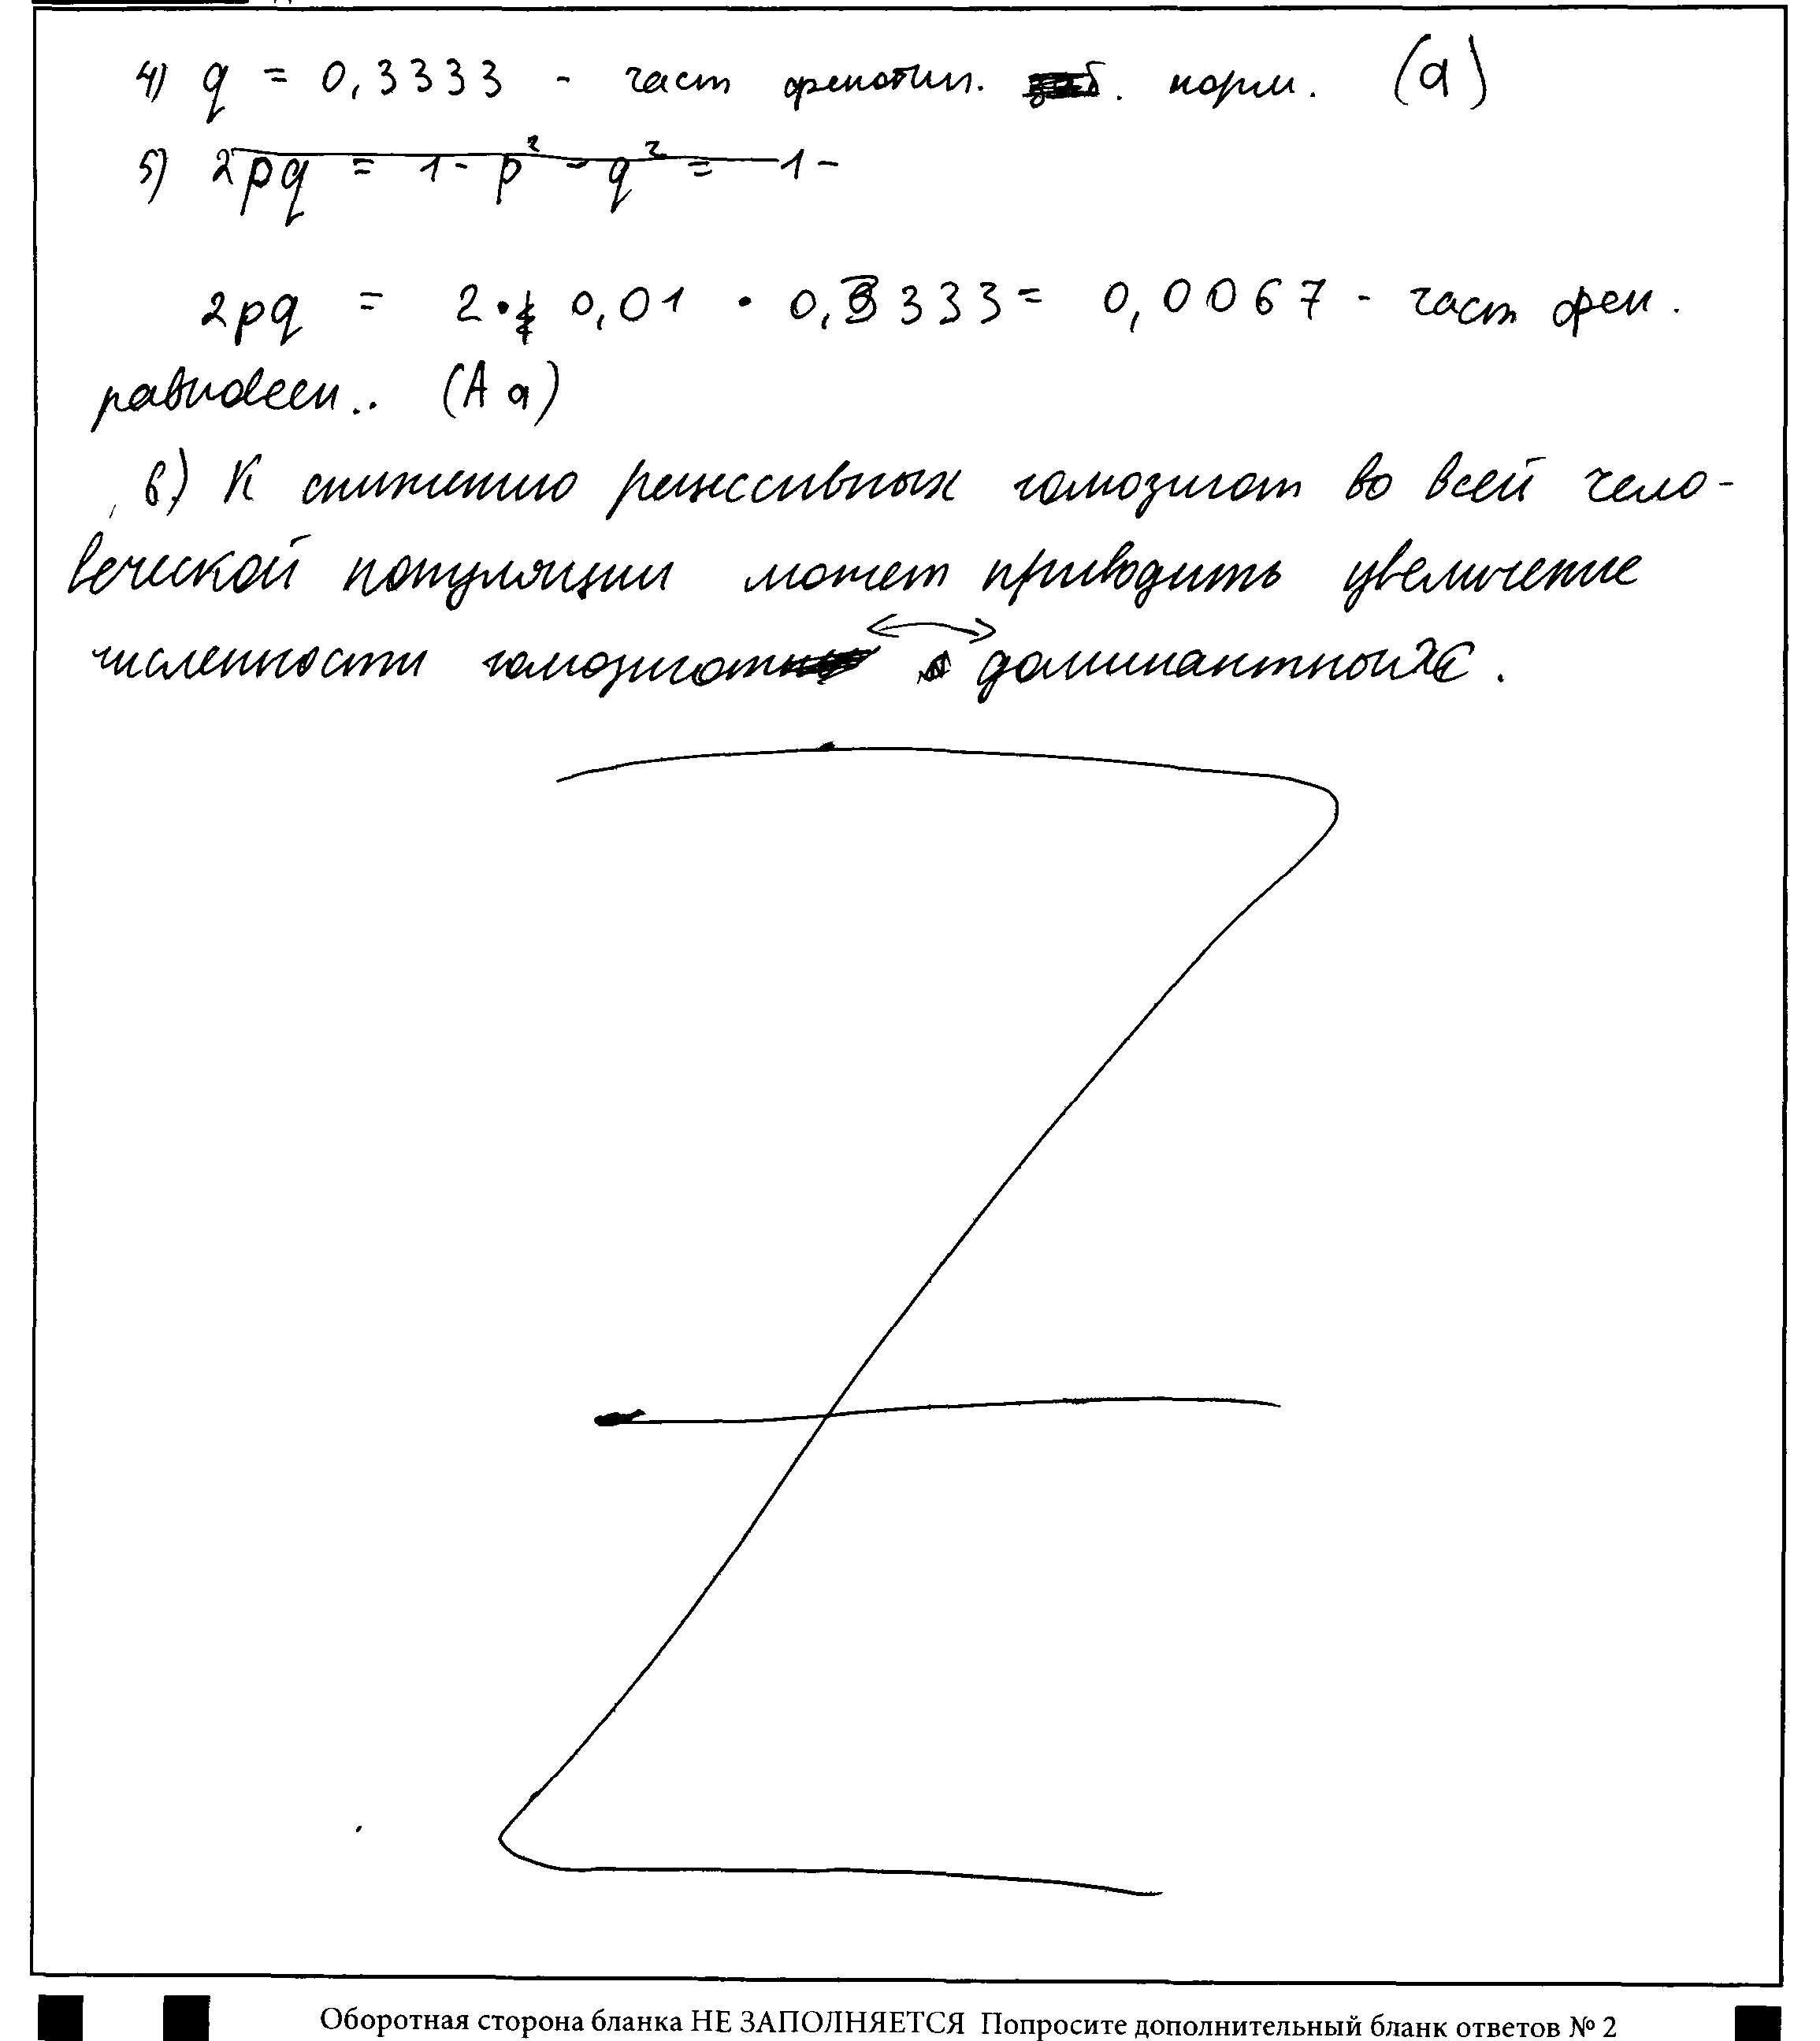 4) q = 0,3333 - част фенотип. норм. (a)
5) 2pq = 1 - p² - q² = 1 -
2pq = 2 · 0,01 · 0,3333 = 0,0067 - част фен.
равновесн.. (Aa)
6) К снижению рецессивных гомозигот во всей чело-
веческой популяции может приводить увеличение
численности гомозигот доминантных.
Оборотная сторона бланка НЕ ЗАПОЛНЯЕТСЯ Попросите дополнительный бланк ответов № 2